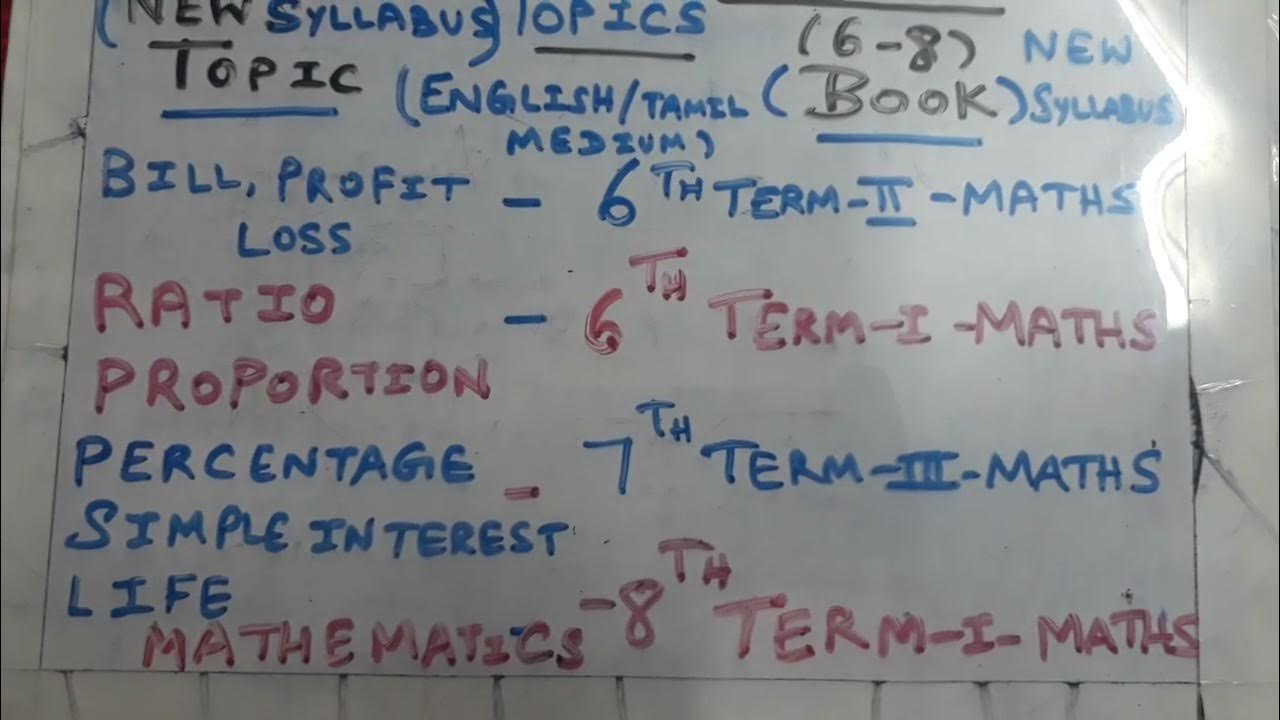 (NEW SYLLABUS) TOPICS
(6-8) NEW
TOPIC (ENGLISH/TAMIL (BOOK) SYLLABUS
MEDIUM)
BILL, PROFIT - 6TH TERM-II-MATHS
LOSS
RATIO - 6TH TERM-I-MATHS
PROPORTION
PERCENTAGE - 7TH TERM-III-MATHS
SIMPLE INTEREST
LIFE
MATHEMATICS -8TH TERM-I-MATHS